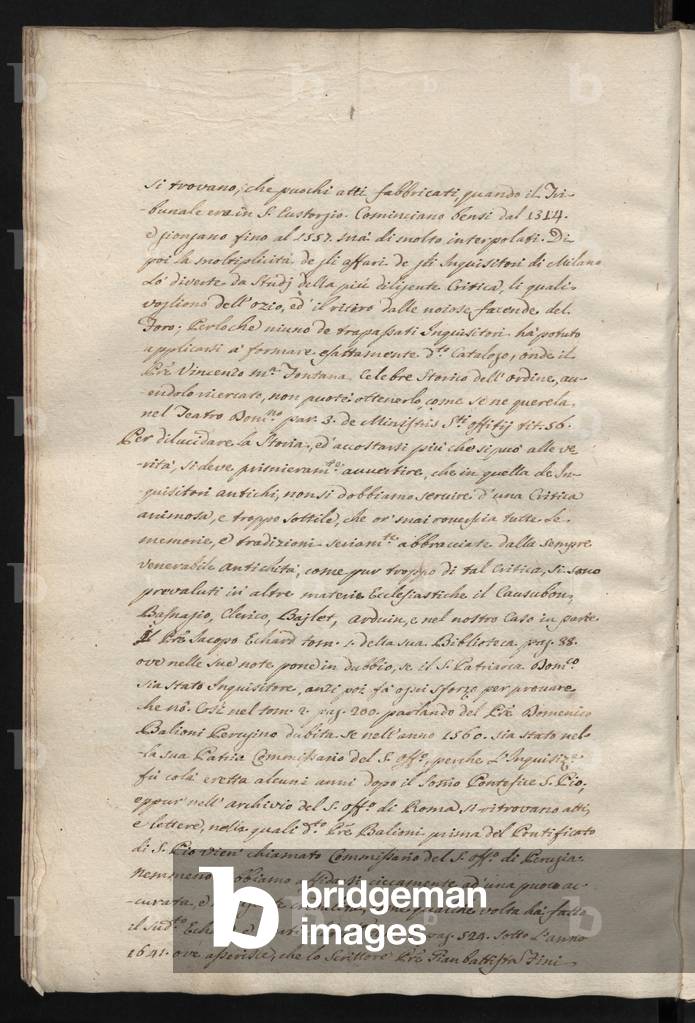 si trovano, che puochi atti fabbricati, quando il Tri-
-bunale era in S. Eustorgio. Cominciano bensi dal 1314.
e giongano fino al 1557. mà di molto interpolati. Di
poi la moltiplicità de gli affari de gli Inquisitori di Milano
Lò diverte da Studj della più diligente Critica, li quali
vogliono dell'ozio, ed' il ritiro dalle noiose facende del
Foro; Perloche niuno de trapassati Inquisitori hà potuto
applicarsi à formare esattamente d.to Catalogo, onde il
Prê Vincenzo M.a Fontana Celebre Storico dell'ordine, au-
endolo ricercato, non puotè ottenerlo, come se ne querela
nel Teatro Dom.no par. 3. de Ministris S.ti offitij tit. 56.
Per dilucidare la Storia, ed' accostarsi più che si può alle ve-
rità, si deve primieram.te auuertire, che in quella de In-
quisitori antichi, non si dobbiamo seruire d'una Critica
animosa, e troppo sottile, che or' mai rouescia tutte le
memorie, e tradizioni seriam.te abbracciate dalla sempre
venerabile Antichità, come pur troppo di tal Critica, si sono
prevaluti in altre materie Ecclesiastiche il Causubon,
Basnagio, Clerico, Bajlet, Arduin, e nel nostro Caso in parte
il Prê Jacopo Echard tom. 1. della sua Biblioteca pag. 88.
ove nelle sue note pone in dubbio, se il S. Patriarca Dom.co
sia stato Inquisitore, anzi poi fà ogni sforzo per prouare
che nò. Così nel tom. 2. pag. 200. parlando del Prê Domenico
Balioni Perugino dubita se nell'anno 1560. sia stato nel-
-la sua Patria Commissario del S. off.o, perche L'Inquisiz.e
fù colà eretta alcuni anni dopo il Sommo Pontefice S. Pio,
eppur nell'archivio del S. off.o di Roma si ritrovano atti,
e lettere, nelle quali d.to Prê Balioni prima del Pontificato
di S. Pio vien chiamato Commissario del S. off.o di Perugia.
Nemmeno dobbiamo affidarsi ciecamente ad'una puoco ac-
curata, e qualche volta hà fatto
il sud.to Echard pag. 524. sotto L'anno
1641. ove asserisce, che lo Scrittore Prê Gian battista Fini
bridgeman
images